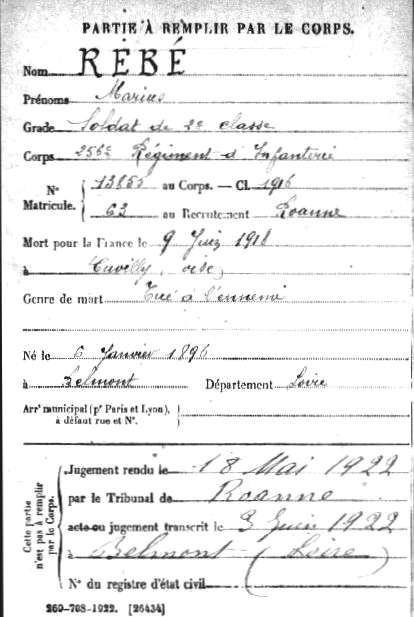 PARTIE À REMPLIR PAR LE CORPS.
Nom RÉBÉ
Prénoms Marius
Grade Soldat de 2e classe
Corps 256e Régiment d'Infanterie
N° Matricule. { 13855 au Corps. — Cl. 1916
62 au Recrutement Roanne
Mort pour la France le 9 Juin 1918
à Cuvilly, oise,
Genre de mort Tué à l'ennemi
Né le 6 Janvier 1896
à Belmont Département Loire
Arrt municipal (pr Paris et Lyon), à défaut rue et N°.
Cette partie n'est pas à remplir par le Corps.
Jugement rendu le 18 Mai 1922
par le Tribunal de Roanne
acte ou jugement transcrit le 3 Juin 1922
à Belmont (Loire)
N° du registre d'état civil
260-708-1922. [26434]